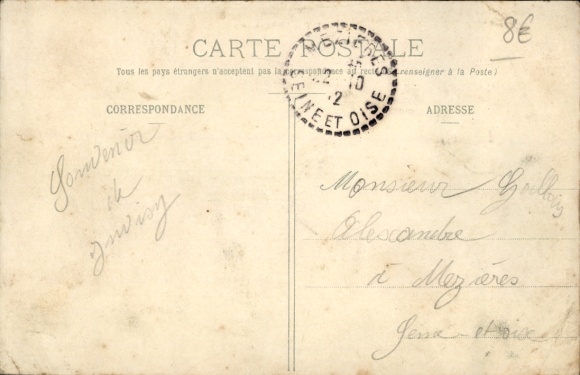 8€
CARTE POSTALE
Tous les pays étrangers n'acceptent pas la correspondance au recto (se renseigner à la Poste)
MEZIERES
10
12
SEINE ET OISE
CORRESPONDANCE
ADRESSE
Souvenir
de
Juvisy
Monsieur Gallois
Alexandre
à Mezières
Seine-et-oise